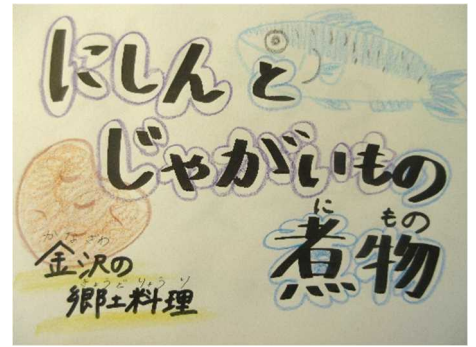 にしんと
じゃがいもの
にもの
煮物
かなざわ
金沢の
きょうどりょうり
郷土料理